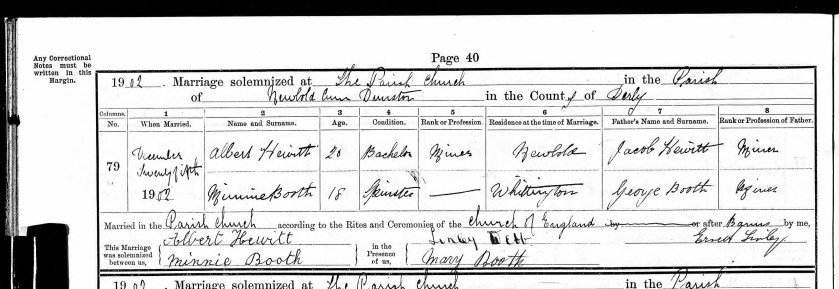 Page 40
Any Correctional
Notes must be
written in this
Margin.
1902. Marriage solemnized at The Parish Church in the Parish
of Newbold cum Dunston in the County of Derby
Columns. 1 2 3 4 5 6 7 8
No. When Married. Name and Surname. Age. Condition. Rank or Profession. Residence at the time of Marriage. Father's Name and Surname. Rank or Profession of Father.
79 December Twenty fifth 1902
Albert Hewitt 20 Bachelor Miner Newbold Jacob Hewitt Miner
Minnie Booth 18 Spinster — Whittington George Booth Miner
Married in the Parish Church according to the Rites and Ceremonies of the Church of England by or after Banns by me,
This Marriage
was solemnized
between us,
Albert Hewitt
Minnie Booth
in the
Presence
of us,
Mary Booth
Ernest
1902. Marriage solemnized at The Parish Church in the Parish